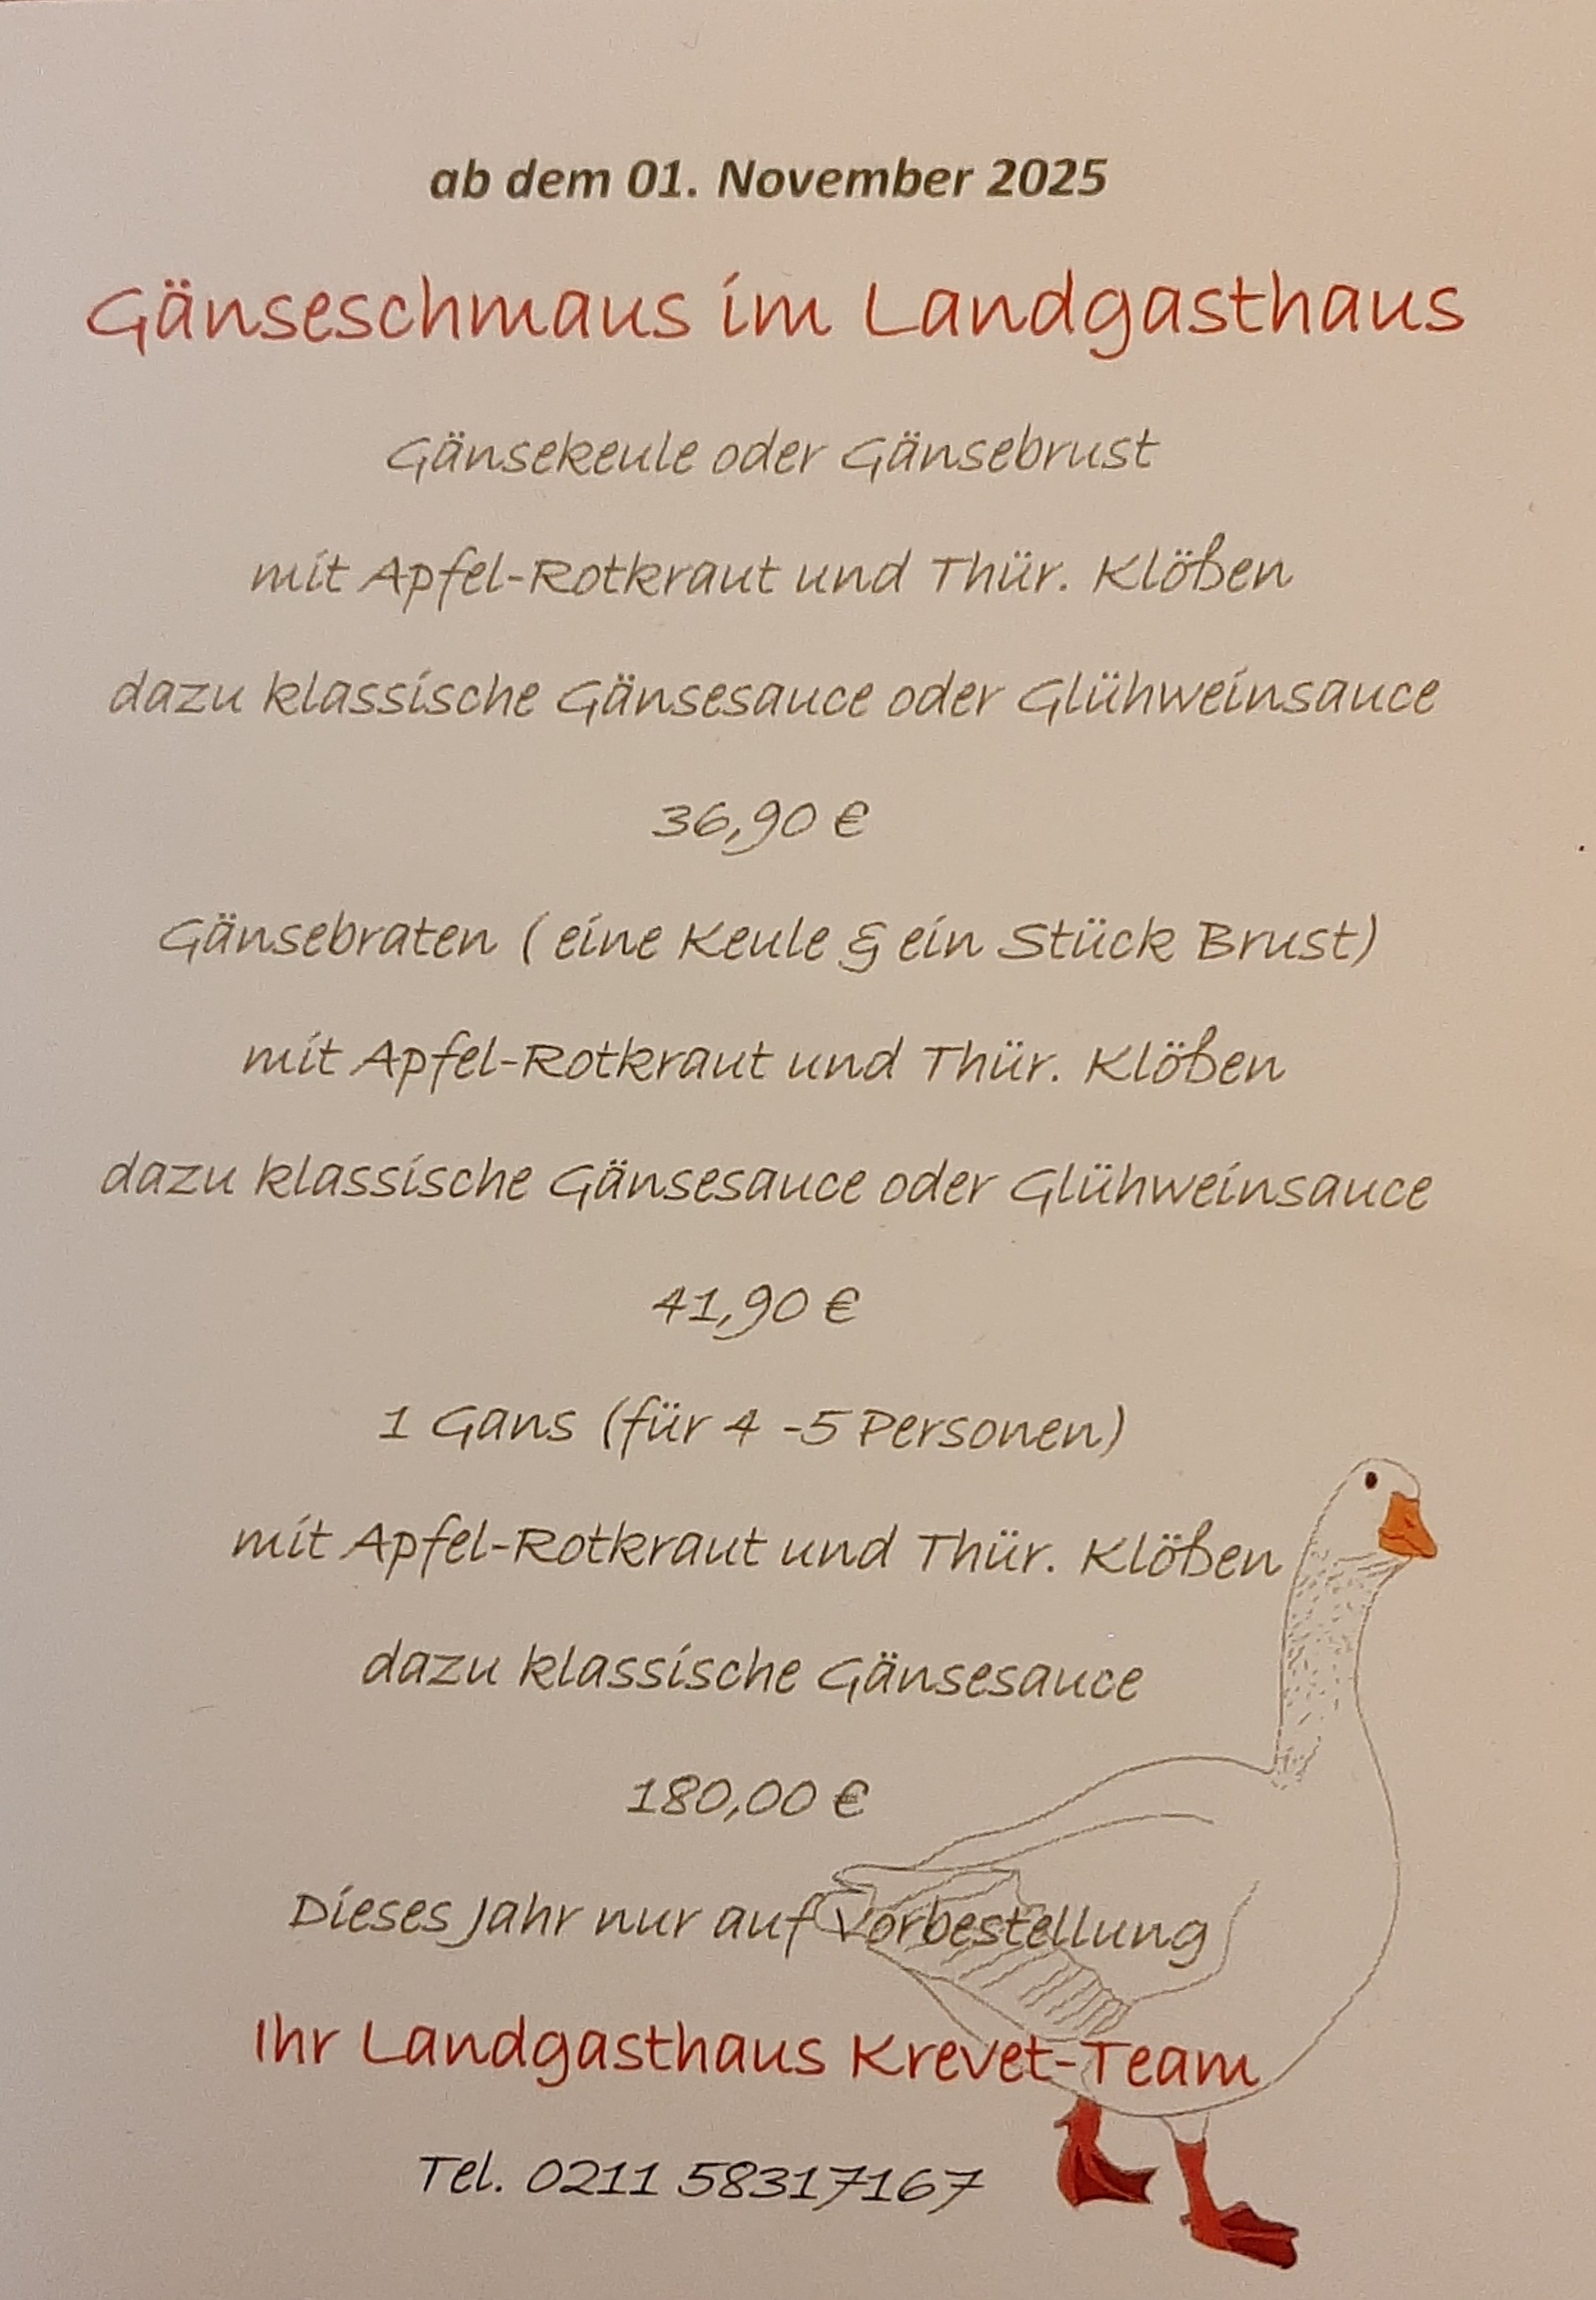 ab dem 01. November 2025
Gänseschmaus im Landgasthaus
Gänsekeule oder Gänsebrust
mit Apfel-Rotkraut und Thür. Klößen
dazu klassische Gänsesauce oder Glühweinsauce
36,90 €
Gänsebraten ( eine Keule & ein Stück Brust)
mit Apfel-Rotkraut und Thür. Klößen
dazu klassische Gänsesauce oder Glühweinsauce
41,90 €
1 Gans (für 4 -5 Personen)
mit Apfel-Rotkraut und Thür. Klößen
dazu klassische Gänsesauce
180,00 €
Dieses Jahr nur auf Vorbestellung
Ihr Landgasthaus Krevet-Team
Tel. 0211 58317167